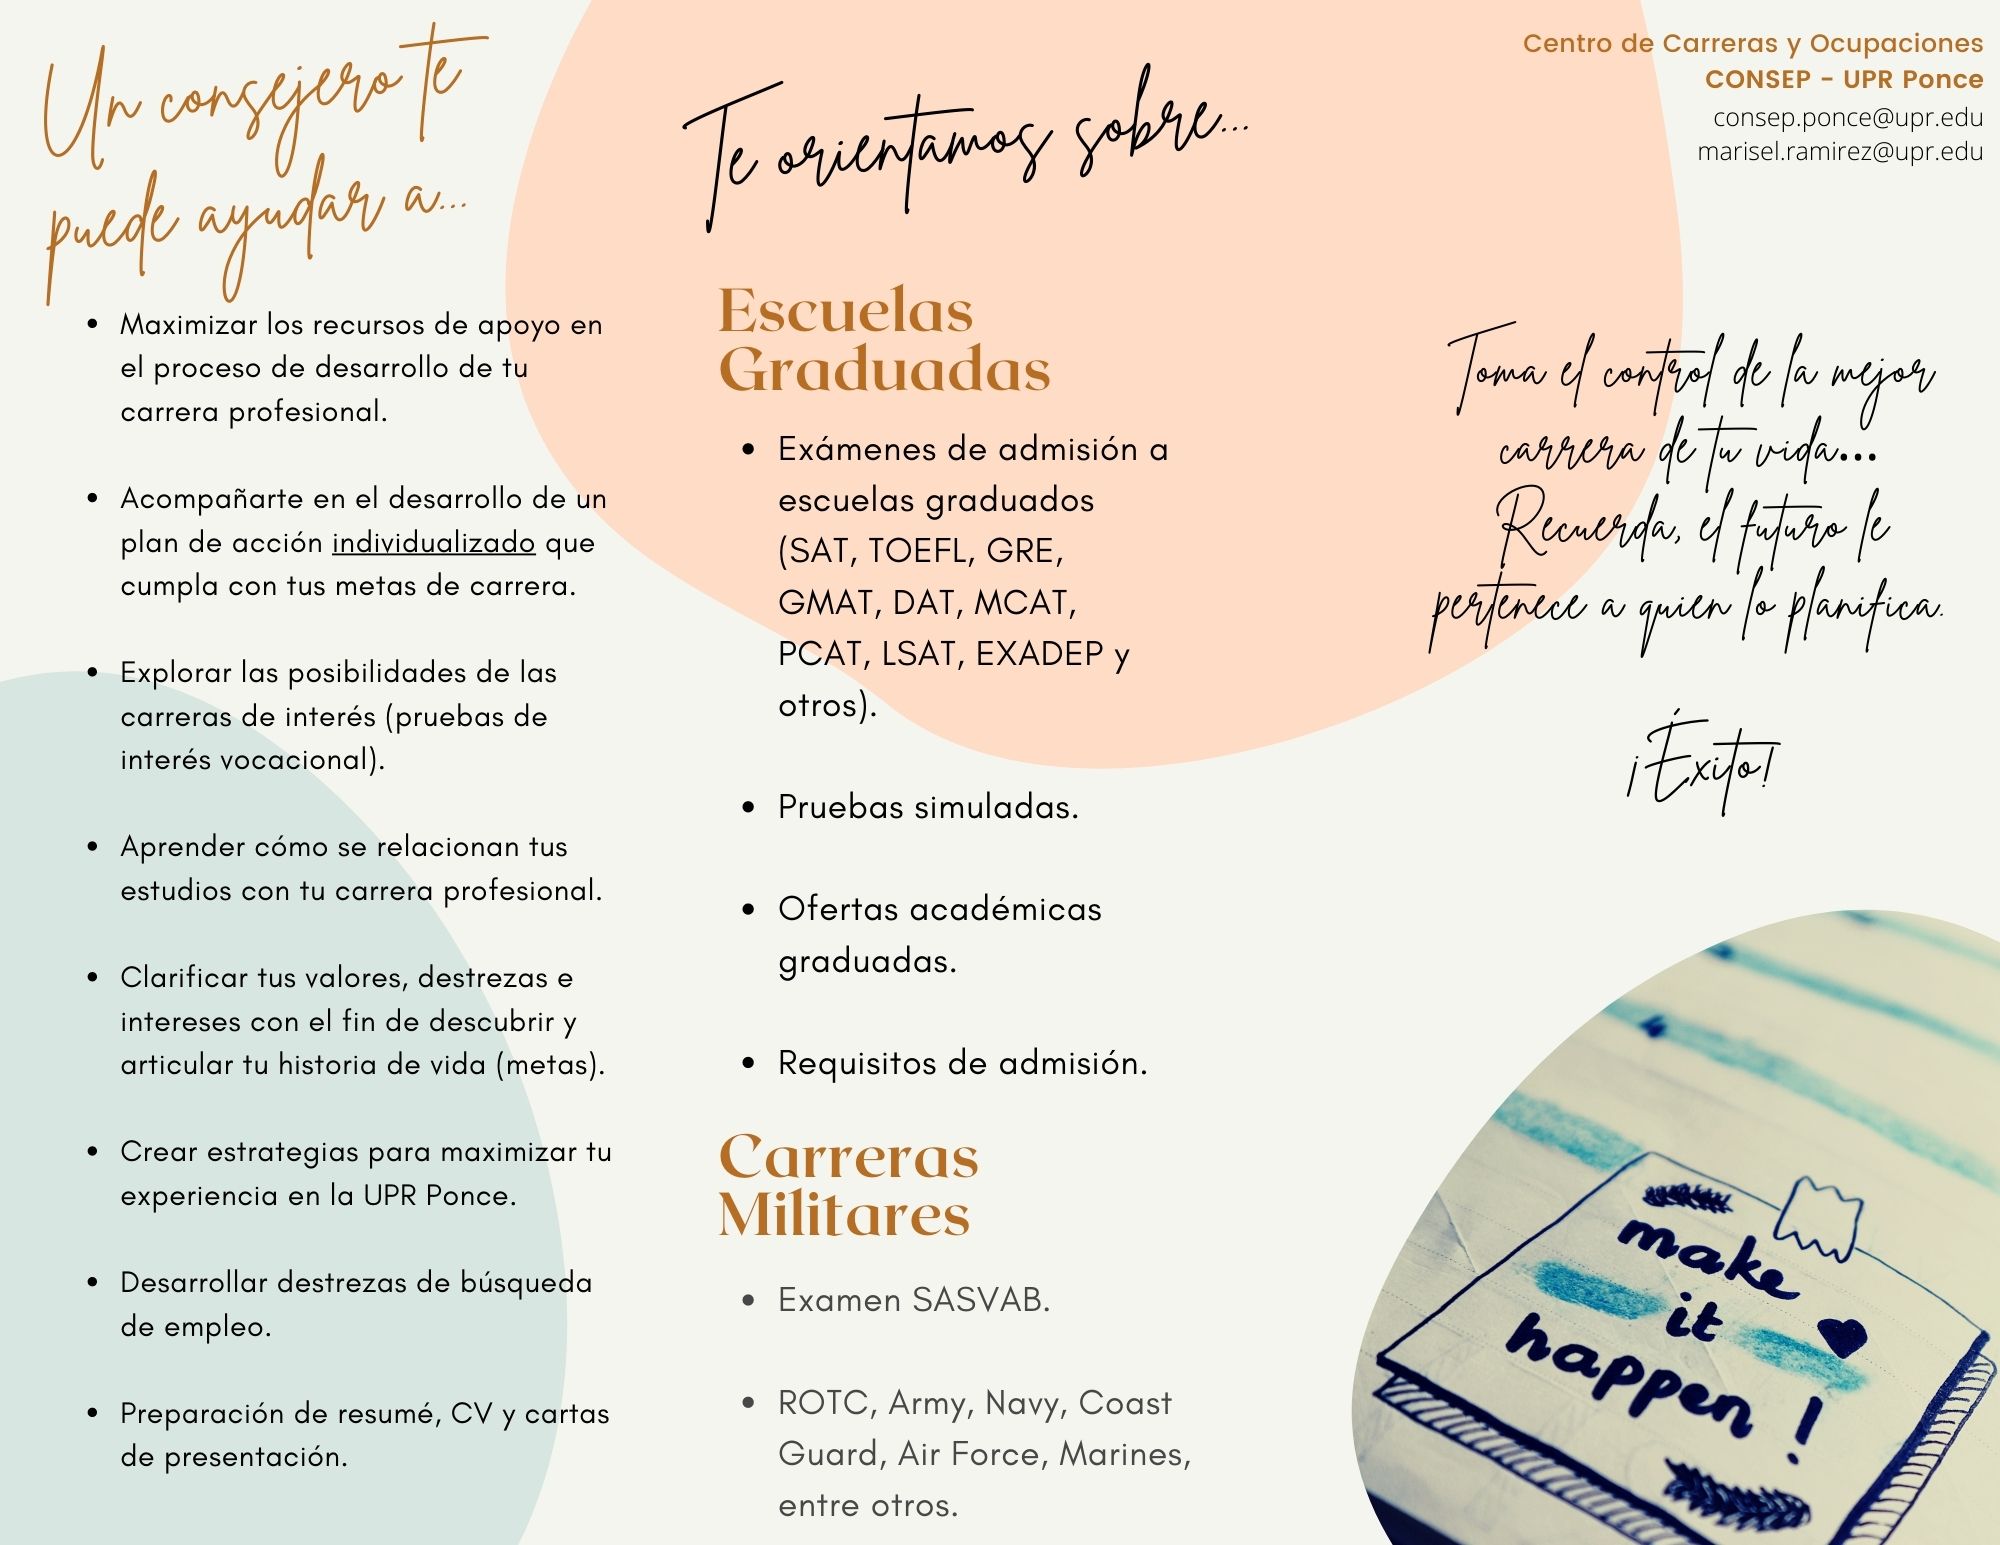 Un consejero te
puede ayudar a...
• Maximizar los recursos de apoyo en
el proceso de desarrollo de tu
carrera profesional.
• Acompañarte en el desarrollo de un
plan de acción individualizado que
cumpla con tus metas de carrera.
• Explorar las posibilidades de las
carreras de interés (pruebas de
interés vocacional).
• Aprender cómo se relacionan tus
estudios con tu carrera profesional.
• Clarificar tus valores, destrezas e
intereses con el fin de descubrir y
articular tu historia de vida (metas).
• Crear estrategias para maximizar tu
experiencia en la UPR Ponce.
• Desarrollar destrezas de búsqueda
de empleo.
• Preparación de resumé, CV y cartas
de presentación.
Te orientamos sobre...
Escuelas
Graduadas
• Exámenes de admisión a
escuelas graduados
(SAT, TOEFL, GRE,
GMAT, DAT, MCAT,
PCAT, LSAT, EXADEP y
otros).
• Pruebas simuladas.
• Ofertas académicas
graduadas.
• Requisitos de admisión.
Carreras
Militares
• Examen SASVAB.
• ROTC, Army, Navy, Coast
Guard, Air Force, Marines,
entre otros.
Centro de Carreras y Ocupaciones
CONSEP - UPR Ponce
consep.ponce@upr.edu
marisel.ramirez@upr.edu
Toma el control de la mejor
carrera de tu vida...
Recuerda, el futuro le
pertenece a quien lo planifica.
¡Éxito!
make
it
happen!